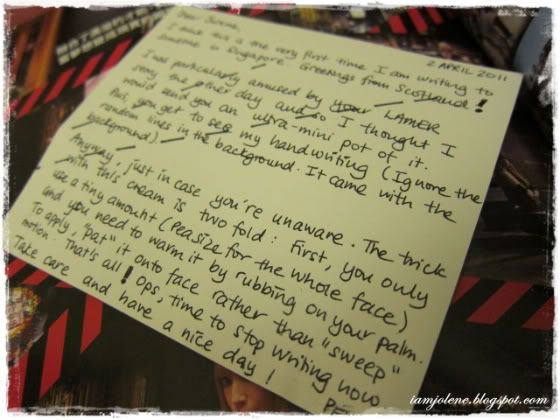 2 APRIL 2011
Dear
I think this is the very first time I am writing to
someone in Singapore. Greetings from Scotland!
I was particularly amused by your LAMER
song the other day and so I thought I
would send you an ultra-mini pot of it.
Plus, you get to see my handwriting (Ignore the
random lines in the background. It came with the
background).
Anyway, just in case you're unaware. The trick
with this cream is two fold: First, you only
use a tiny amount (peasize for the whole face)
and you need to warm it by rubbing on your palm.
To apply, "pat" it onto face rather than "sweep"
motion. That's all! Ops, time to stop writing now
Take care and have a nice day!
iamjolene.blogspot.com